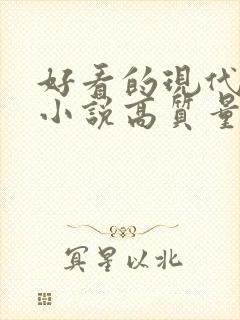 好看的現代
小說高質量
冥星以北